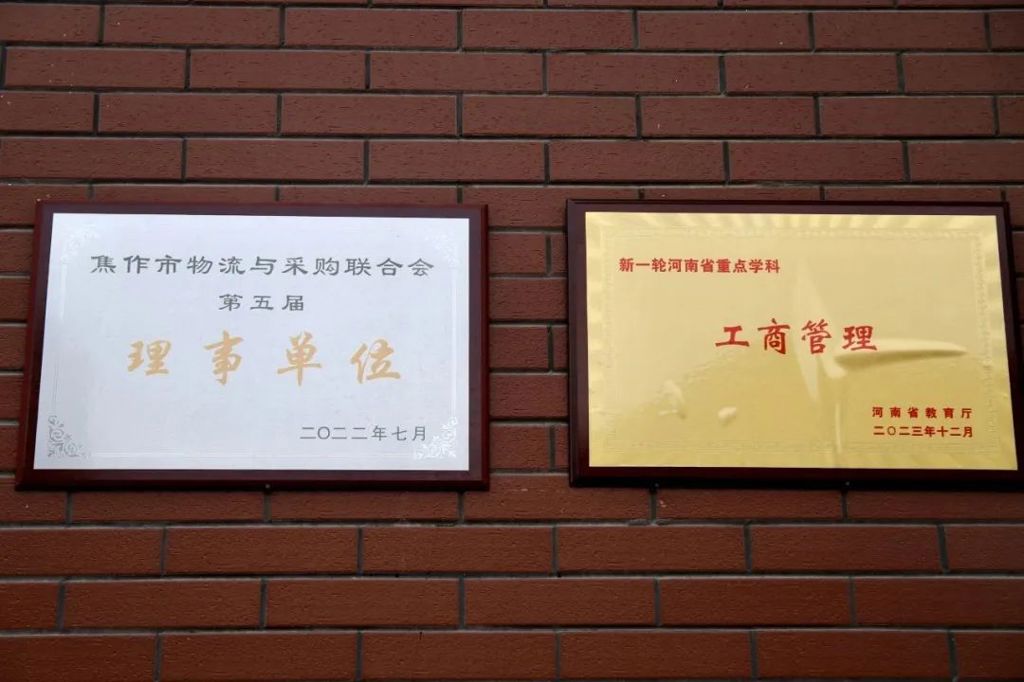 焦作市物流与采购联合会
第五届
理事单位
二〇二二年七月
新一轮河南省重点学科
工商管理
河南省教育厅
二〇二三年十二月